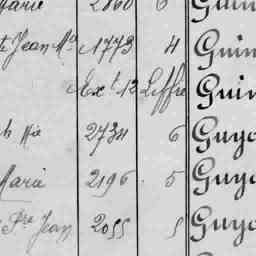 Marie 2860 6 Guin
Jean Mie 1773 4 Guin
Ext 12 Leffie Guin
Mie 2734 6 Guyo
Marie 2196 5 Guyo
Pre Jean 2055 5 Guyo